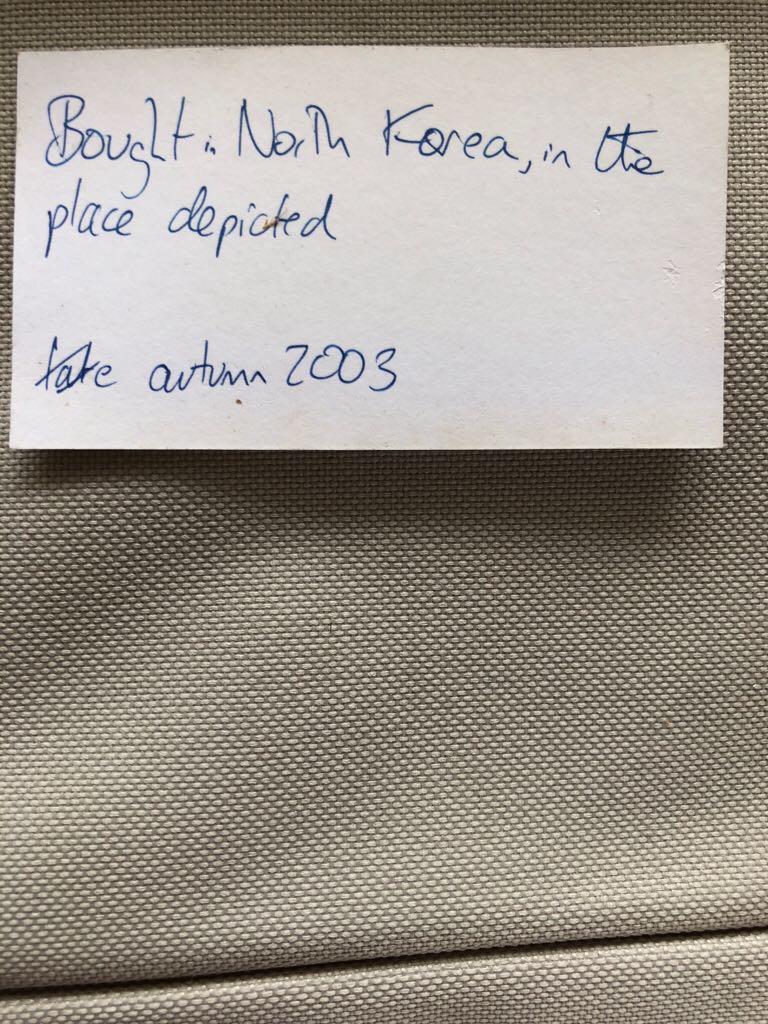 Bought in North Korea, in the
place depicted
late autumn 2003